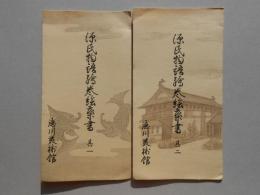 源氏物語繪巻絵葉書 其一
徳川美術館
源氏物語繪巻絵葉書 其二
徳川美術館